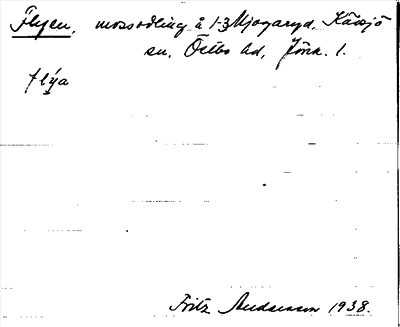 Flyen, mossodling å 1-3 Mjogaryd, Kävsjö
sn, Östbo hd, Jönk. l.
flýa
Fritz Andersson 1938.